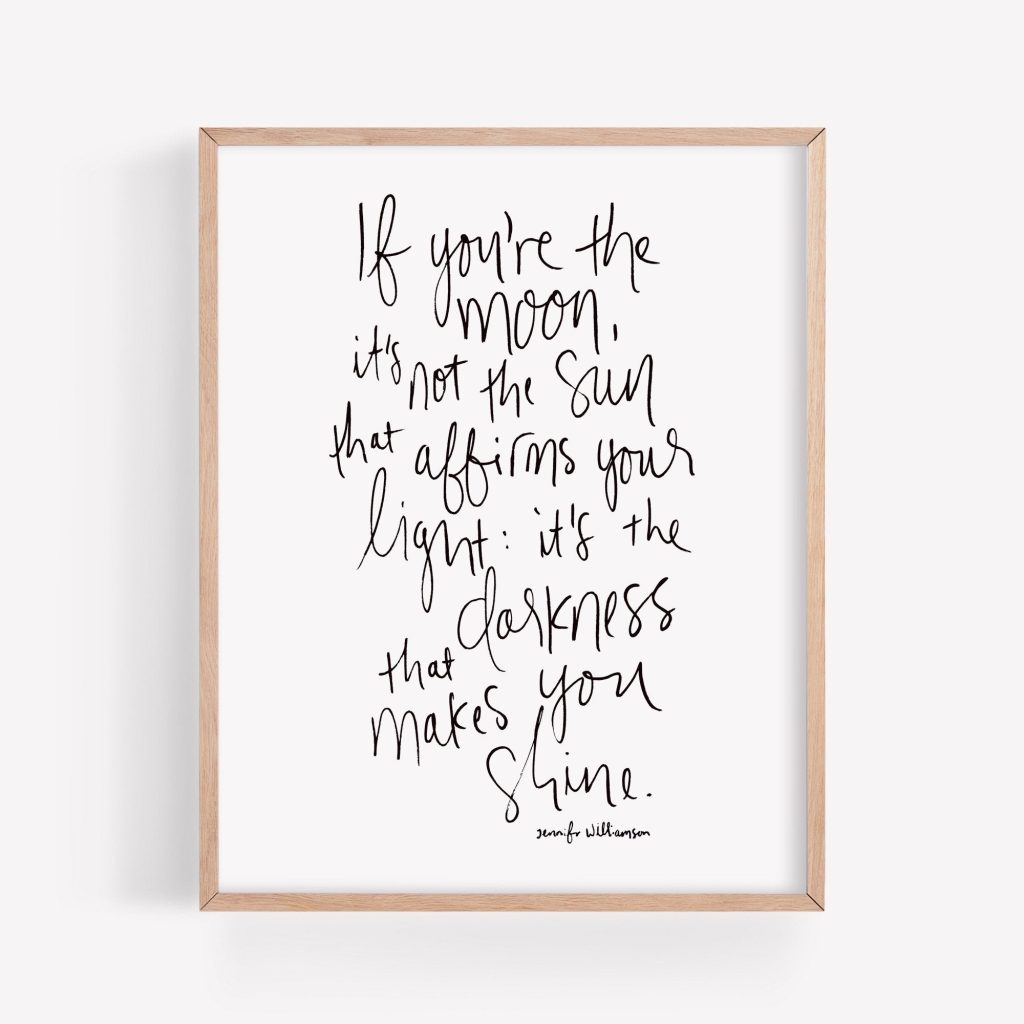 If you're the
moon,
it's not the sun
that affirms your
light: it's the
darkness
that
makes you
shine.
Jennifr Williamson